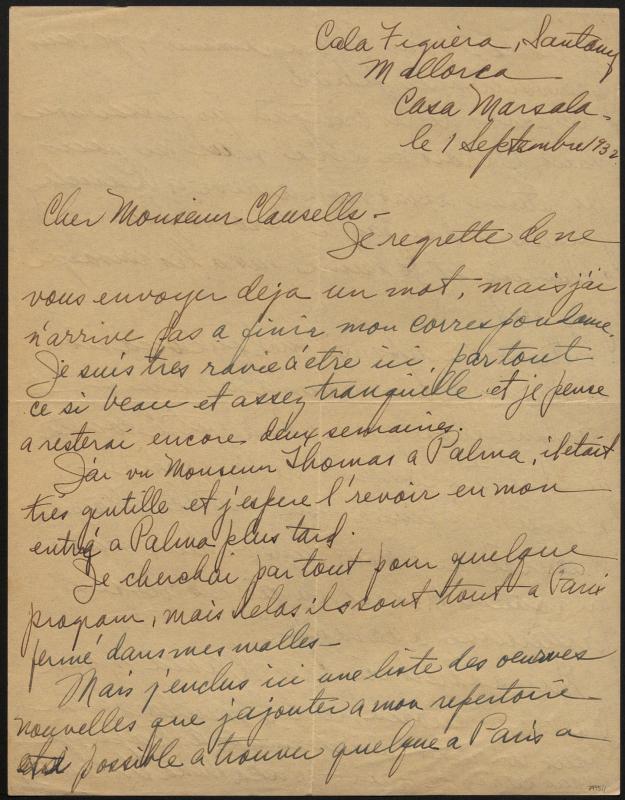 Cala Figuera, Santany
Mallorca
Casa Marsala -
le 1 Septembre 1932
Cher Monsieur Clausells -
Je regrette de ne
vous envoyer deja un mot, mais j'ai
n'arrive pas a finir mon correspondance.
Je suis tres ravie a être ici, partout
ce si beau et assez tranquille et je pense
a resterai encore deux semaines.
J'ai vu Monsieur Thomas a Palma, il etait
très gentille et j'espere l'revoir en mon
a Palma plus tard.
Je cherchai partout pour quelque
program, mais helas ils sont tout a Paris
fermé dans mes malles -
Mais j'enclus ici une liste des oeuvres
nouvelles que j'ajouter a mon repertoire
possible a trouver quelque a Paris a